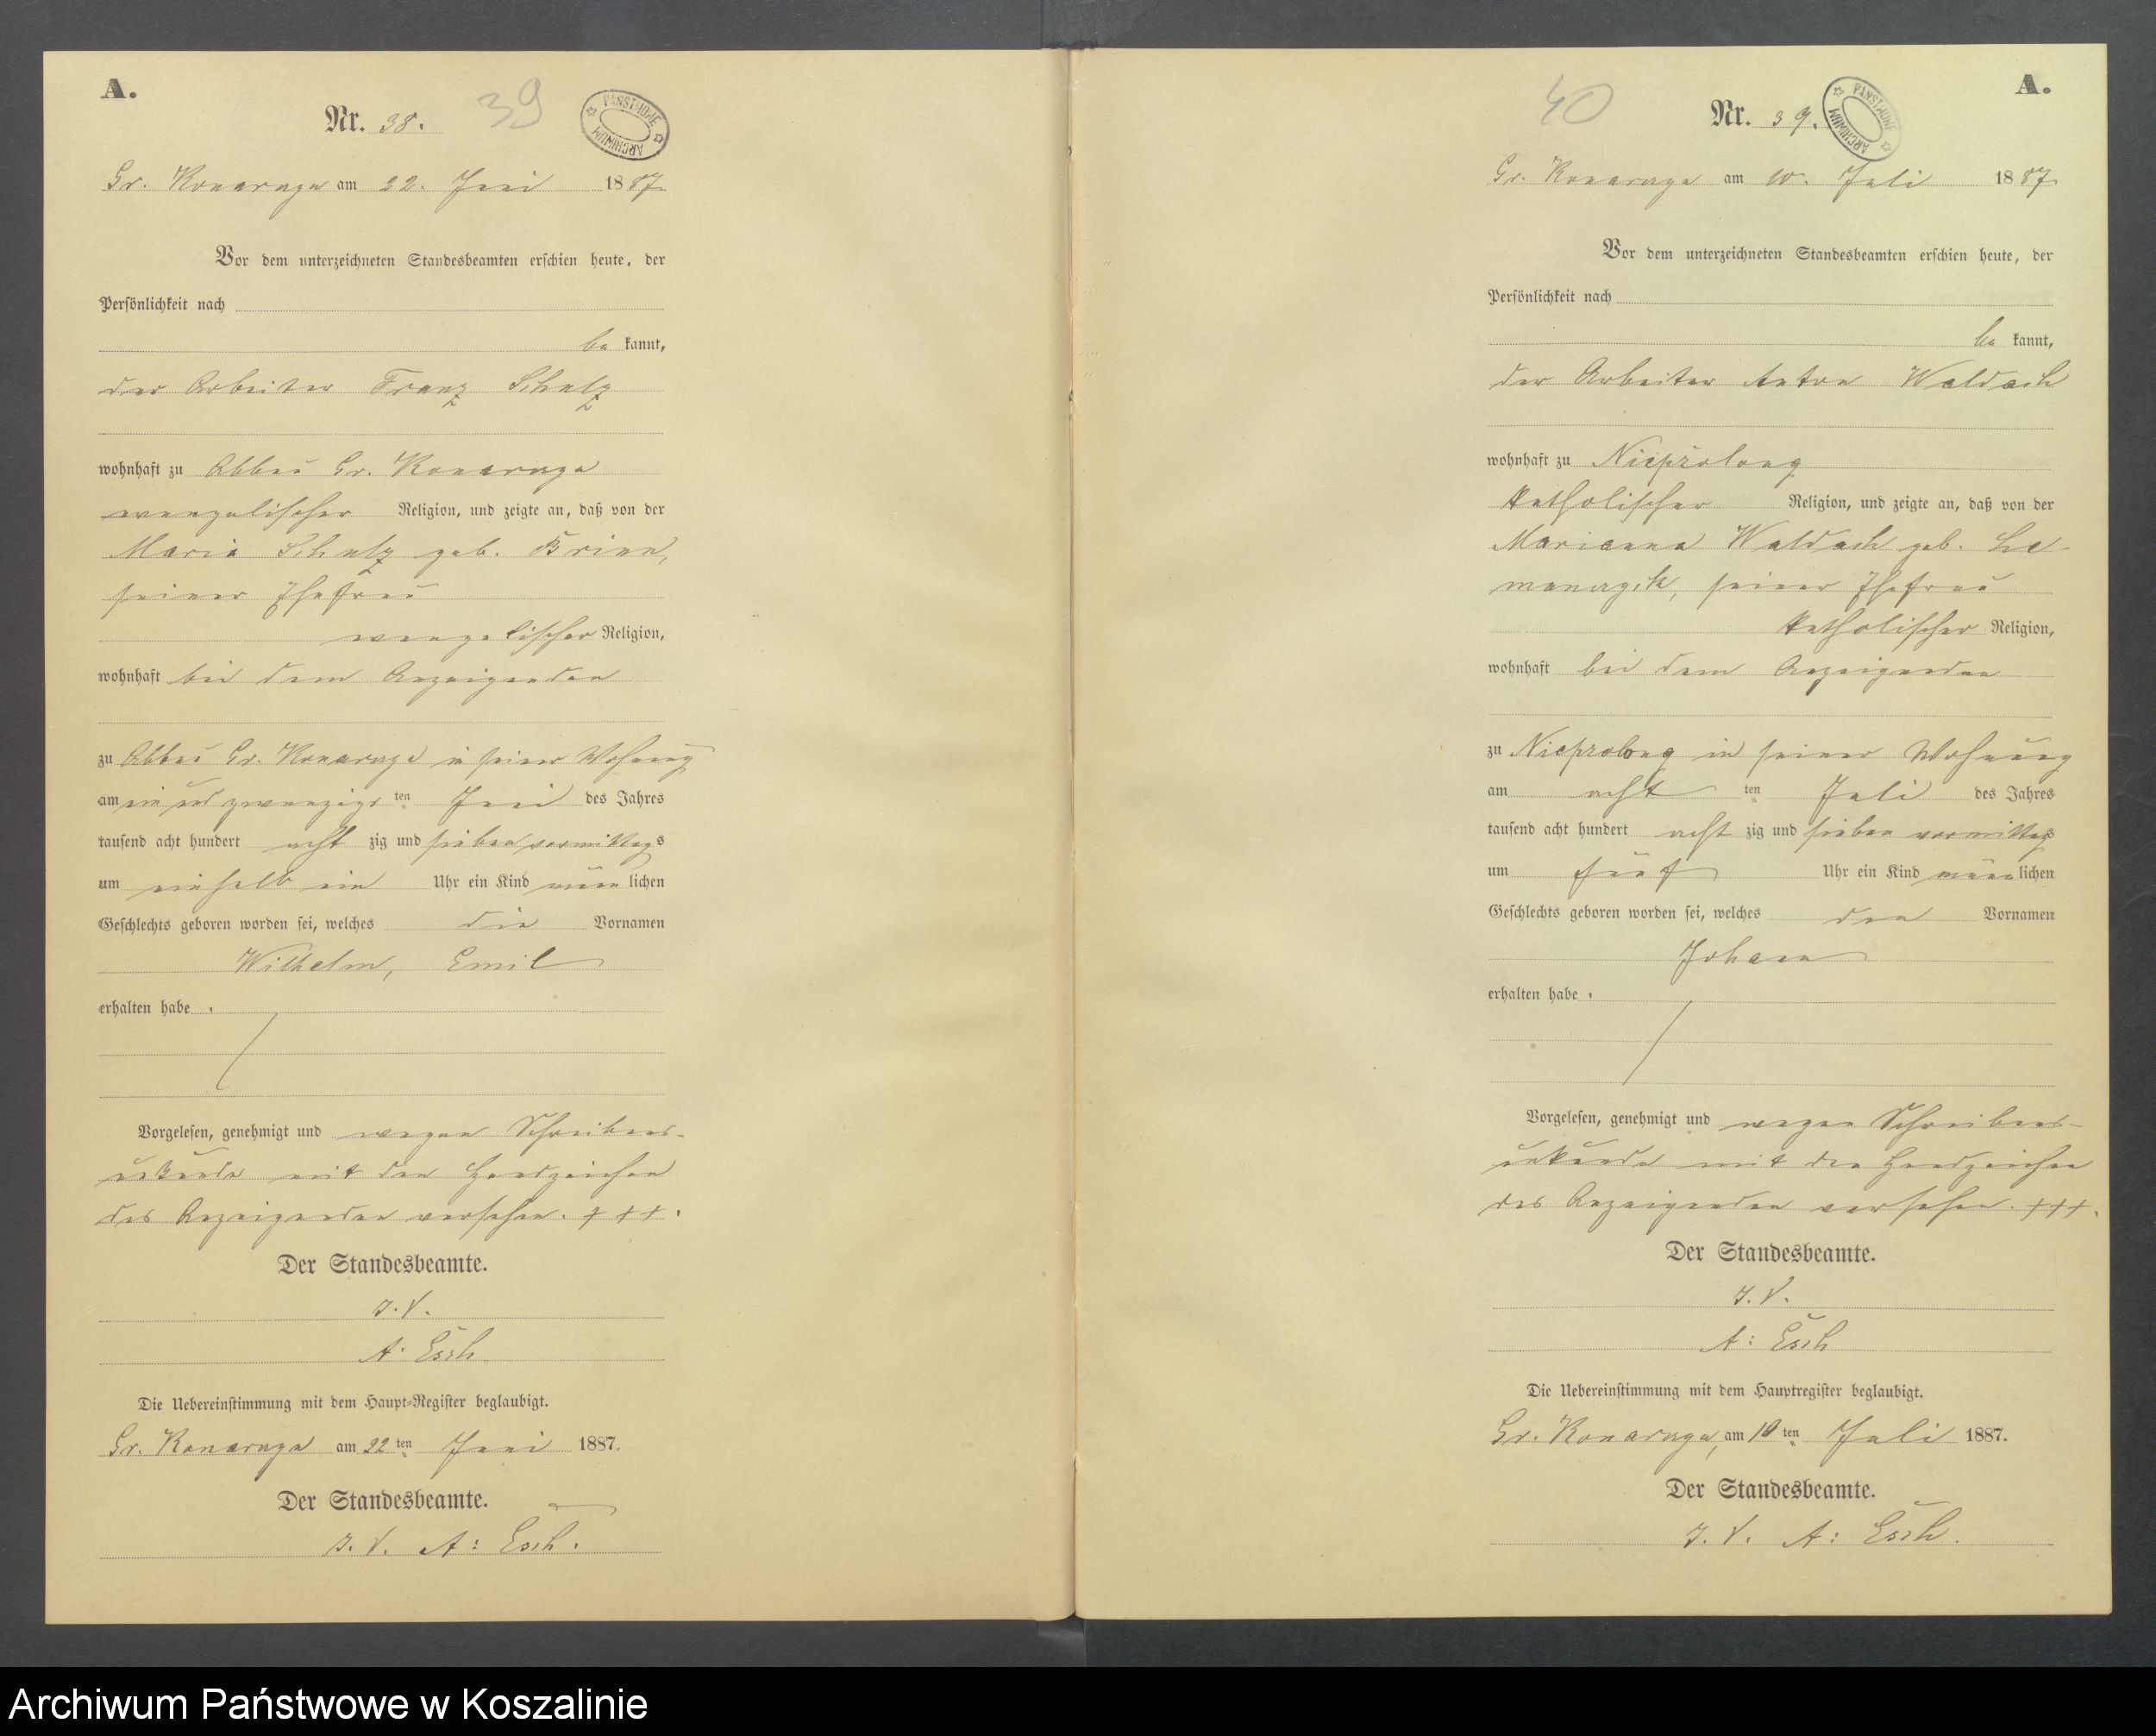 A.
Nr. 38.
39
PAŃSTWOWE ARCHIWUM
Gr. Konarzyn am 22. Juni 1887
Vor dem unterzeichneten Standesbeamten erschien heute, der
Persönlichkeit nach
be kannt,
der Arbeiter Franz Schulz
wohnhaft zu Abbau Gr. Konarzyn
evangelischer Religion, und zeigte an, daß von der
Maria Schulz geb. Krinn,
seiner Ehefrau
evangelischer Religion,
wohnhaft bei dem Anzeigenden
zu Abbau Gr. Konarzyn in seiner Wohnung
am ein und zwanzigs ten Juni des Jahres
tausend acht hundert acht zig und sieben vormittags
um einhalb ein Uhr ein Kind männ lichen
Geschlechts geboren worden sei, welches die Vornamen
Wilhelm, Emil
erhalten habe.
Vorgelesen, genehmigt und wegen Schreibens-
unkunde mit den Handzeichen
des Anzeigenden versehen. +++.
Der Standesbeamte.
J. V.
A: Esch
Die Uebereinstimmung mit dem Haupt-Register beglaubigt.
Gr. Konarzyn am 22 ten Juni 1887.
Der Standesbeamte.
J. V. A: Esch.
A.
40
Nr. 39.
PAŃSTWOWE ARCHIWUM
Gr. Konarzyn am 10. Juli 1887
Vor dem unterzeichneten Standesbeamten erschien heute, der
Persönlichkeit nach
be kannt,
der Arbeiter Anton Waldach
wohnhaft zu Nieprzolong
katholischer Religion, und zeigte an, daß von der
Marianna Waldach geb. Le-
manczik, seiner Ehefrau
katholischer Religion,
wohnhaft bei dem Anzeigenden
zu Niepzolong in seiner Wohnung
am acht ten Juli des Jahres
tausend acht hundert acht zig und sieben vormittags
um fünf Uhr ein Kind männ lichen
Geschlechts geboren worden sei, welches den Vornamen
Johann
erhalten habe.
Vorgelesen, genehmigt und wegen Schreibens-
unkunde mit den Handzeichen
des Anzeigenden versehen. +++.
Der Standesbeamte.
J. V.
A: Esch
Die Uebereinstimmung mit dem Hauptregister beglaubigt.
Gr. Konarzyn, am 10 ten Juli 1887.
Der Standesbeamte.
J. V. A: Esch.
Archiwum Państwowe w Koszalinie